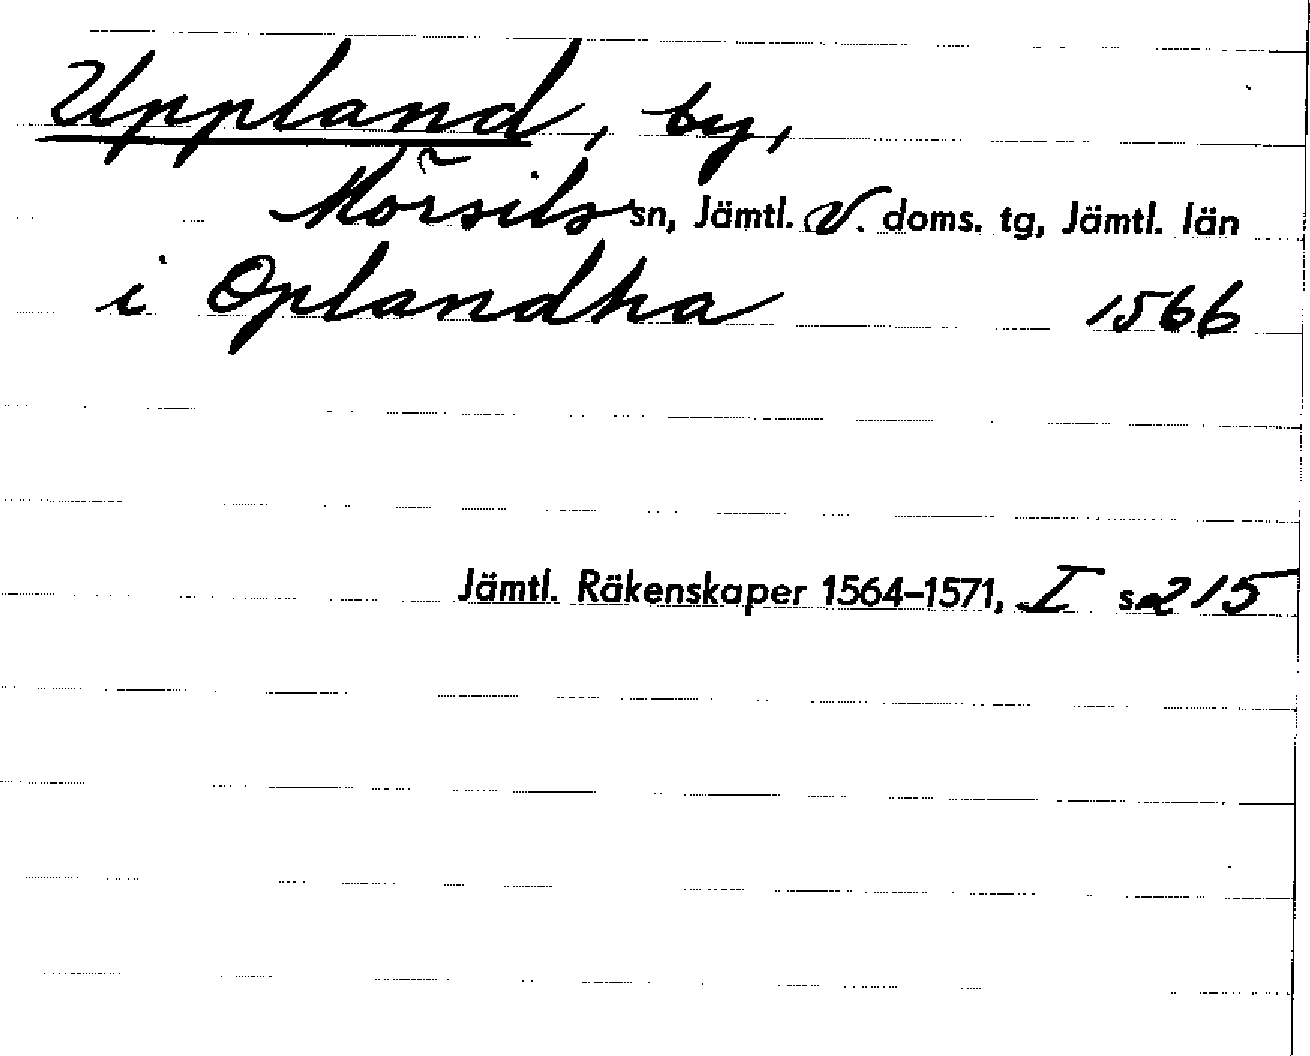 Uppland, by,
Mörsils sn, Jämtl. V. doms. tg, Jämtl. län
i Oplandha 1566
Jämtl. Räkenskaper 1564–1571, I s 215